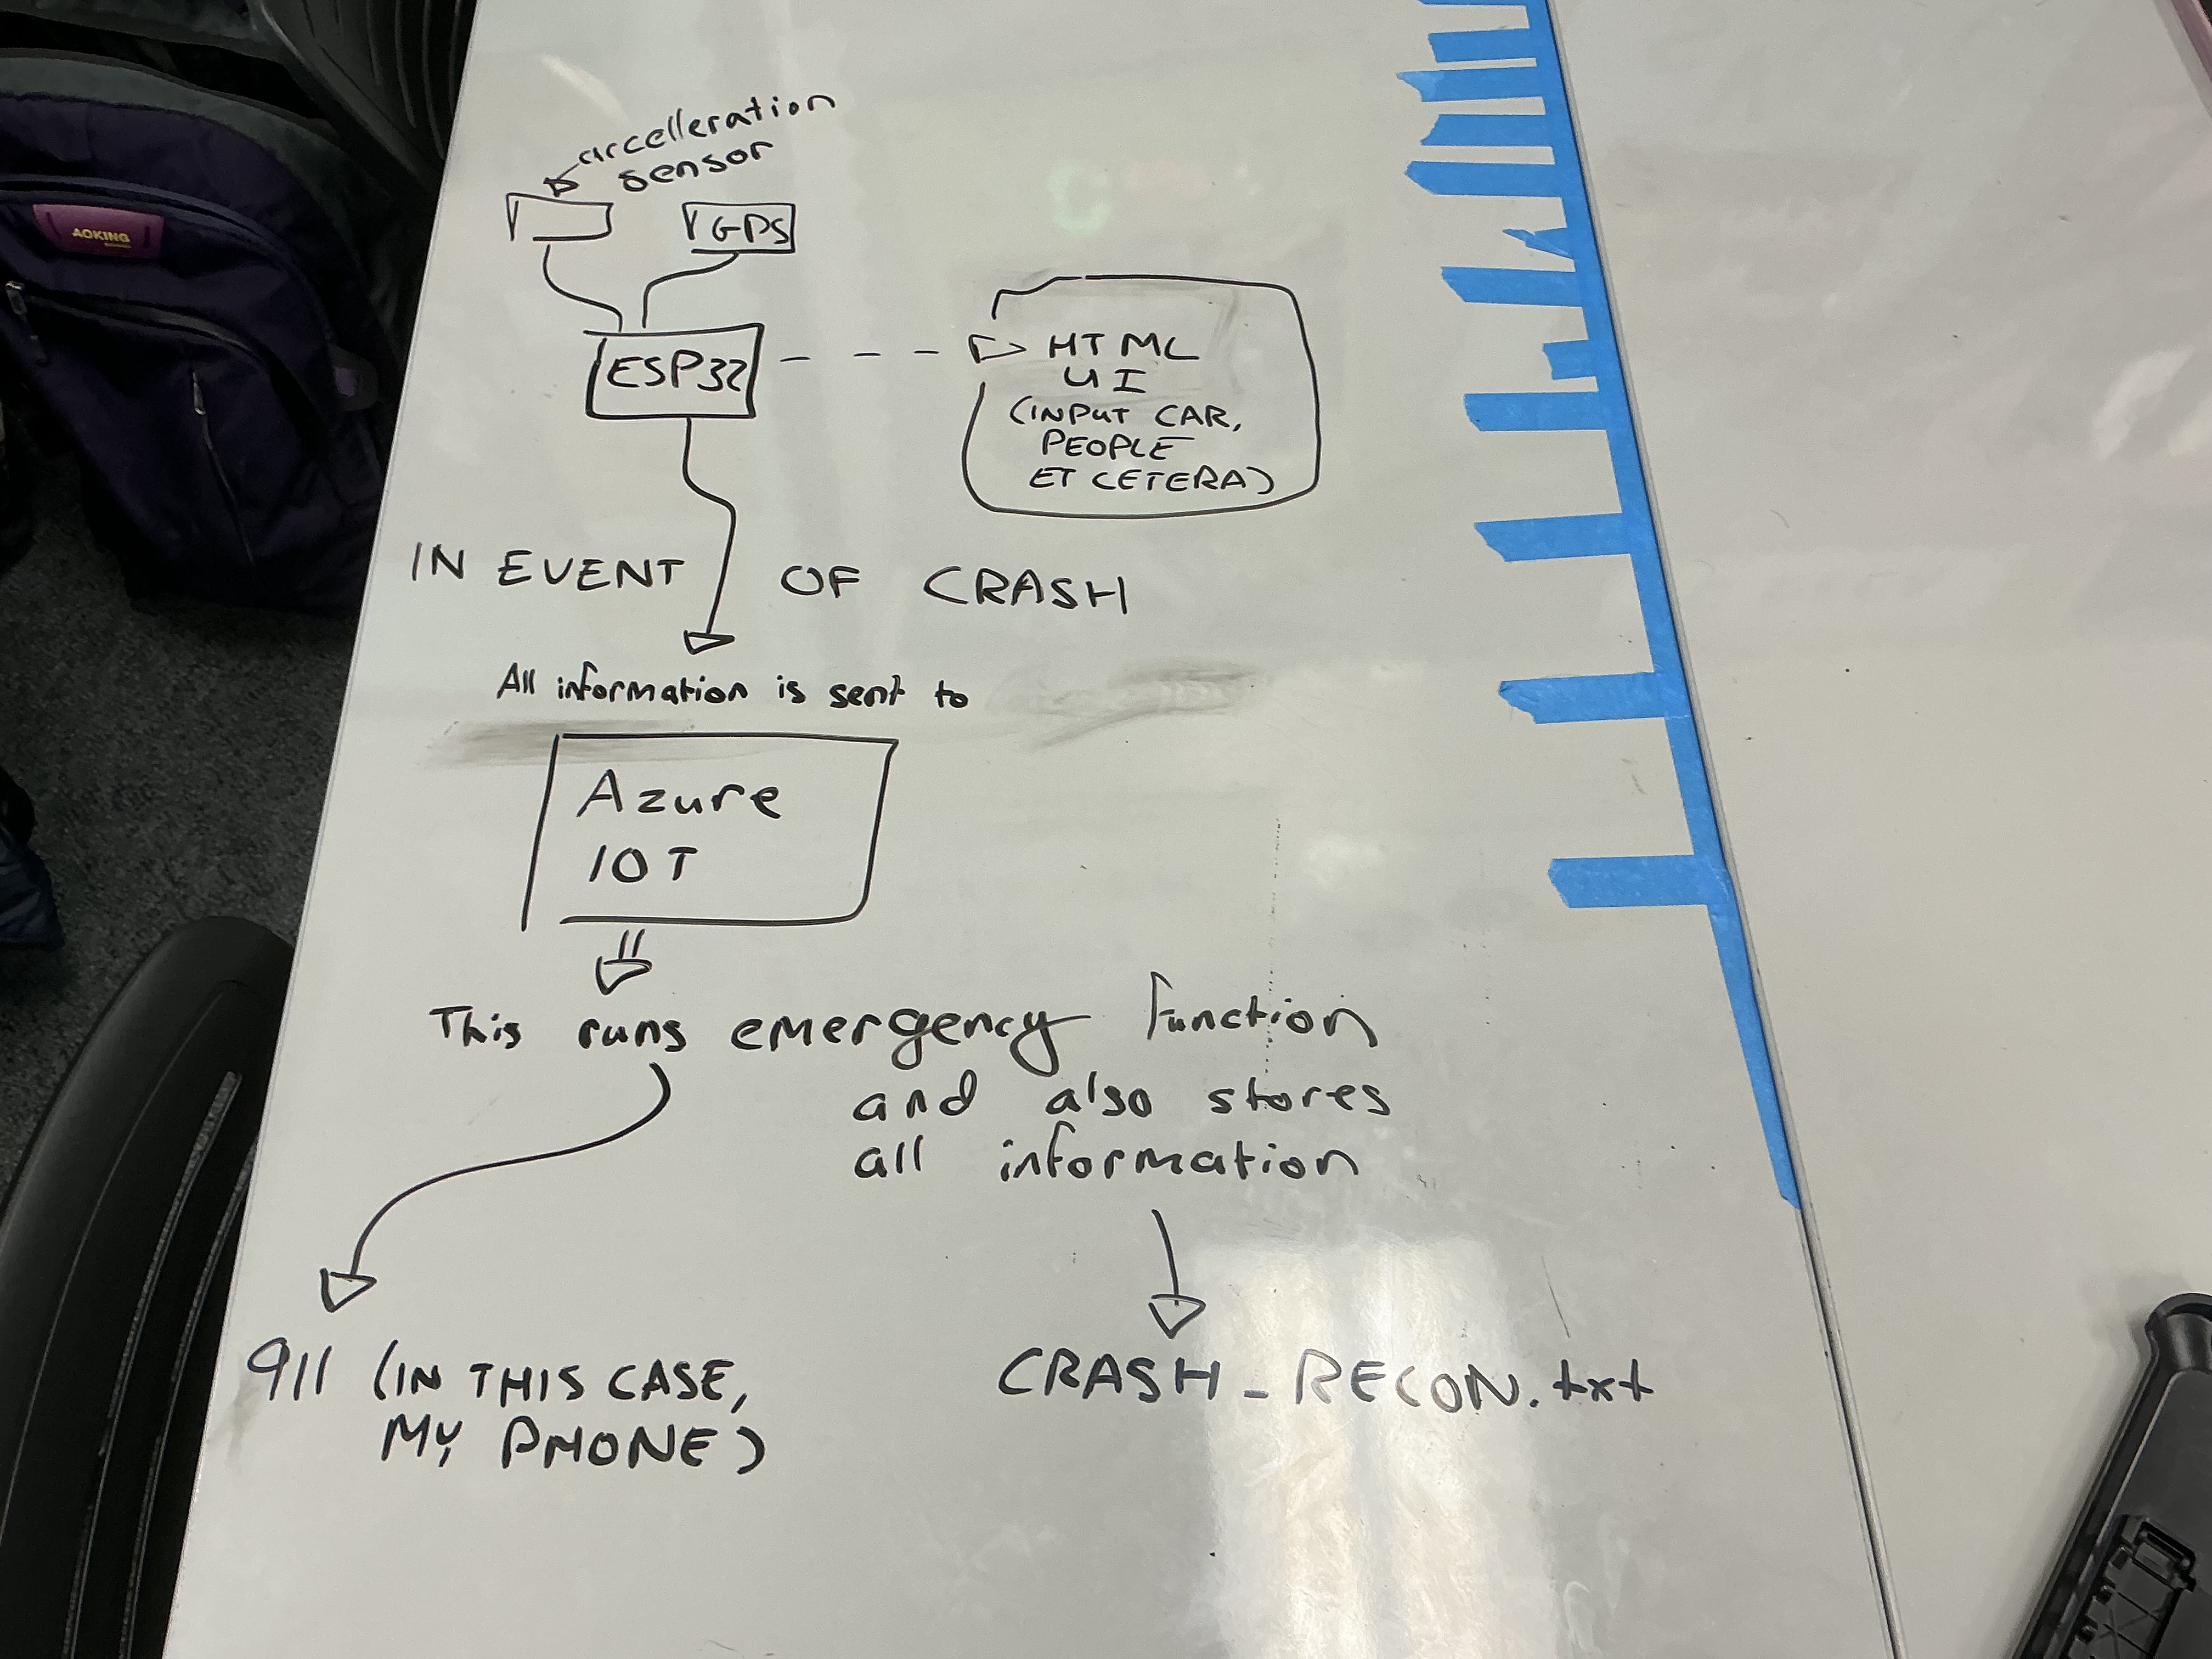 accelleration
sensor
GPS
AOKING
ESP32
HTML
UI
(INPUT CAR,
PEOPLE
ET CETERA)
IN EVENT OF CRASH
All information is sent to
Azure
IOT
This runs emergency function
and also stores
all information
911 (IN THIS CASE,
MY PHONE)
CRASH_RECON.txt